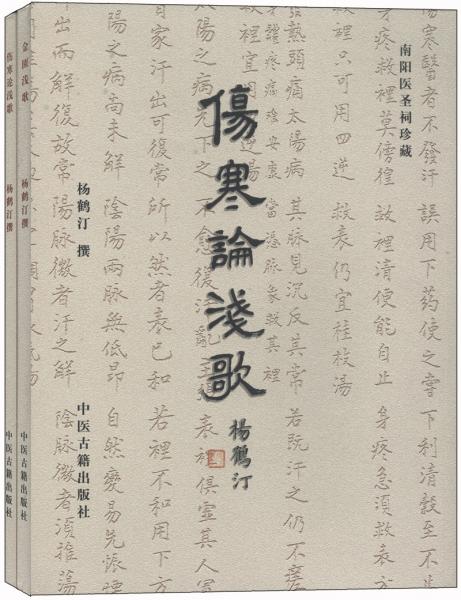 南阳医圣祠珍藏
傷寒論淺歌
楊鶴汀
杨鹤汀 撰
中医古籍出版社
傷寒醫者不發汗 誤用下藥使之 下利清穀至不止
身疼救裡莫傍徨 故裡清使能自止 身疼急須救表方
救裡只可用四逆 救表仍宜桂枝湯
發熱頭痛太陽病 其脉見沉反其常 若既汗之仍不瘥
當憑脉象救其裡
太陽之病先下之 表裡俱虛其人冒
自家汗出可復常 所以然者表已和 若裡不和用下方
陽之病尚未解 陰陽兩脉無低昂 自然變易先振慄
出而解復故常 陽脉微者汗之解 陰脉微者須推蕩
金匮浅歌 杨鹤汀撰 中医古籍出版社
伤寒论浅歌 杨鹤汀撰 中医古籍出版社